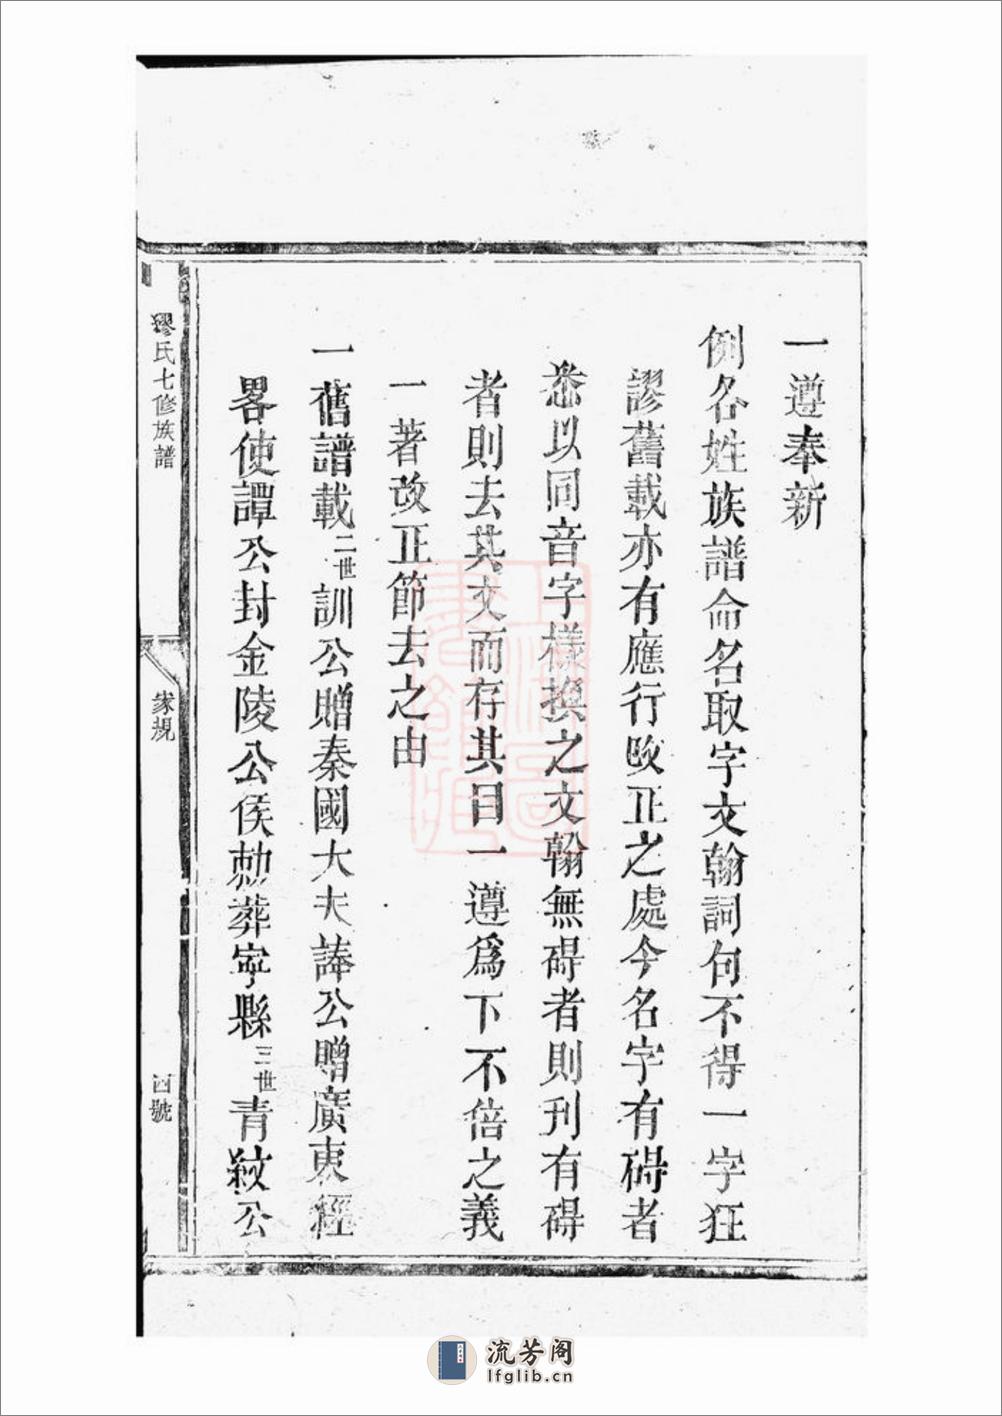 一遵奉新
例各姓族譜命名取字文翰詞句不得一字狂
謬舊載亦有應行改正之處今名字有碍者
悉以同音字樣換之文翰無碍者則刊有碍
者則去其文而存其目一遵爲下不倍之義
一著改正節去之由
一舊譜載二世訓公贈秦國大夫諱公贈廣東經
畧使譚公封金陵公侯勅葬寧縣三世青紋公
繆氏七修族譜
家規
四號
上海圖書館藏
流芳阁
lfglib.cn